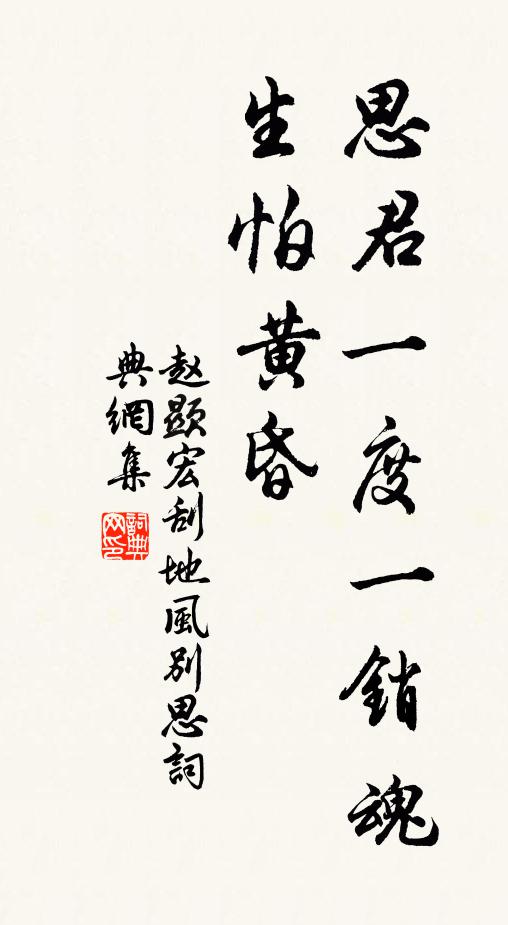 思君一度一銷魂
生怕黄昏
赵顯宏刮地風別思詞
典網集
詞典网印